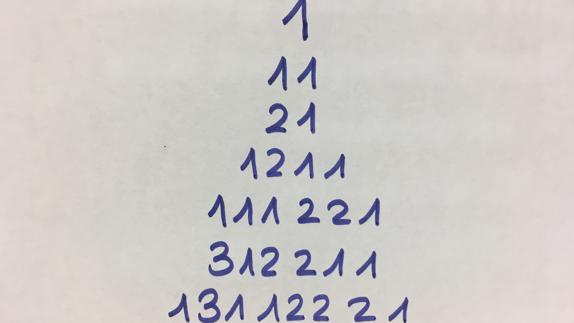 1
11
21
1211
111 221
312 211
131 122 21